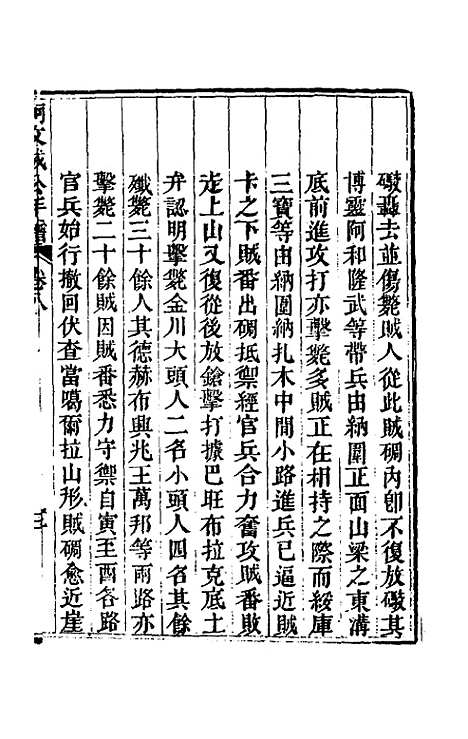 礮轟去並傷斃賊人從此賊碉內卽不復放礮其
博靈阿和隆武等帶兵由納圍正面山梁之東溝
底前進攻打亦擊斃多賊正在相持之際而綏庫
三寶等由納圍納扎木中間小路進兵已逼近賊
卡之下賊番出碉抵禦經官兵合力奮攻賊番敗
走上山又復從後放鎗擊打據巴旺布拉克底土
弁認明擊斃金川大頭人二名小頭人四名其餘
殲斃三十餘人其德赫布興兆王萬邦等兩路亦
擊斃二十餘賊因賊番悉力守禦自寅至酉各路
官兵始行撤回伏查當噶爾拉山形賊碉愈近崖
阿文成公年譜 卷八